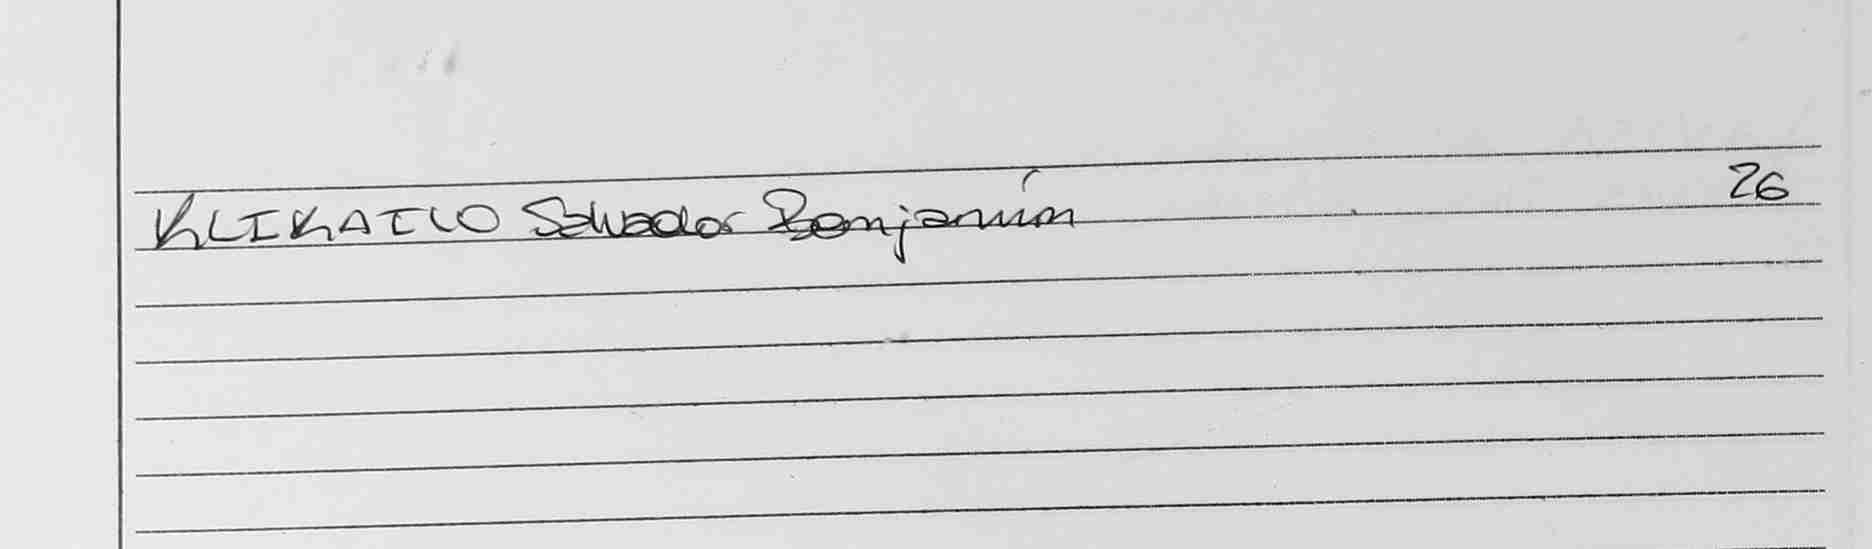 KLIKAILO Salvador Benjamín 26